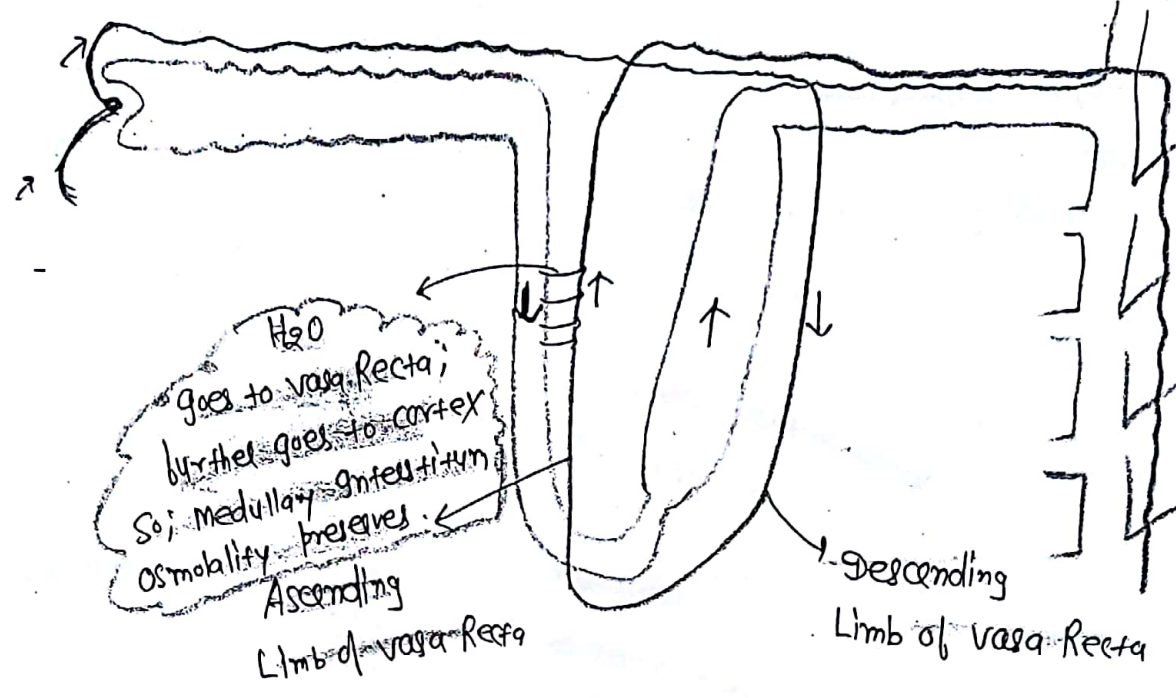 H2O
goes to vasa Recta;
further goes to cortex
So; medullary Intestitum
osmolality preserves.
Ascending
Limb of vasa Recta
Descending
Limb of vasa Recta